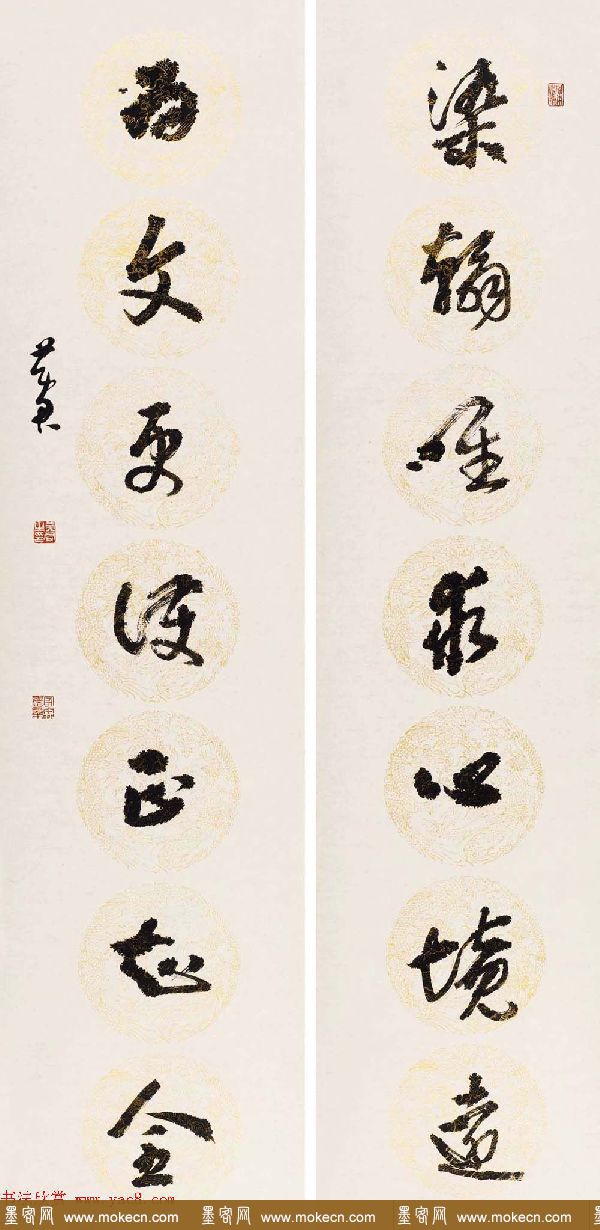 染翰唯求心境遠
为文更正全
黄君
书法欣赏 www.yac8.com
墨客网 www.mokecn.com 墨客网 www.mokecn.com 墨客网 www.mokecn.com